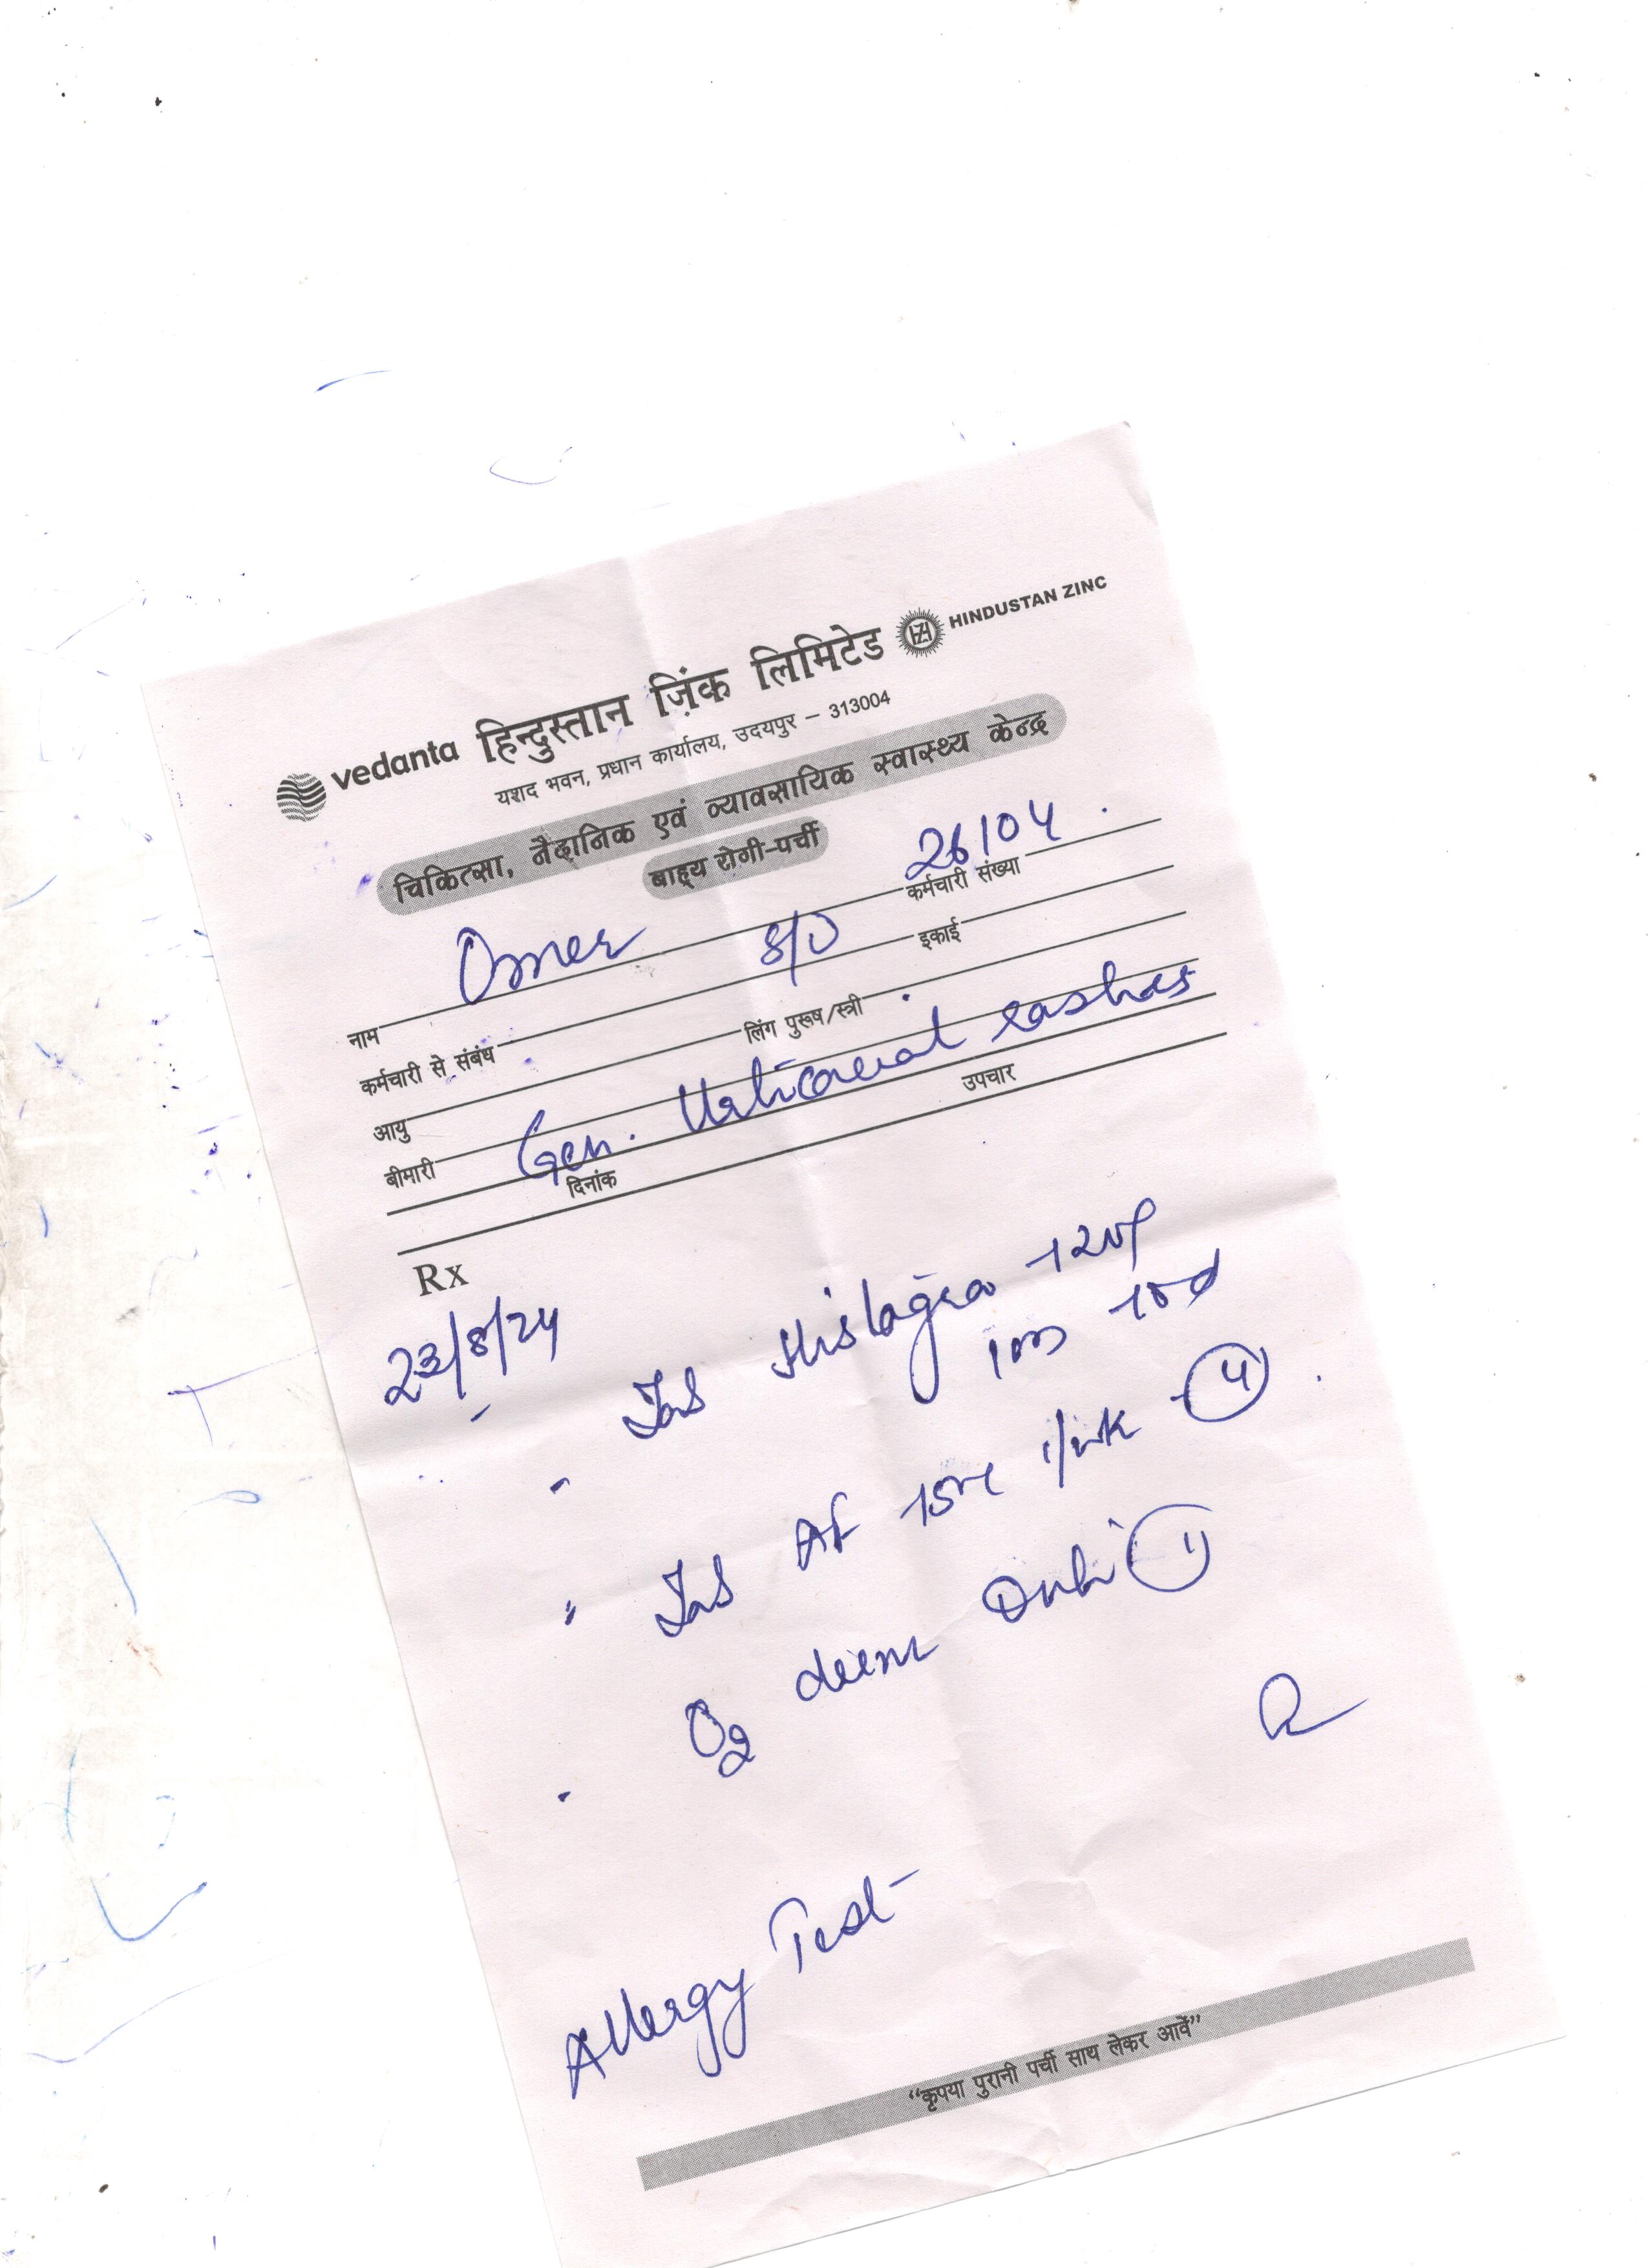 vedanta हिन्दुस्तान ज़िंक लिमिटेड HZ HINDUSTAN ZINC
यशद भवन, प्रधान कार्यालय, उदयपुर – 313004
चिकित्सा, नैदानिक एवं व्यावसायिक स्वास्थ्य केन्द्र
बाह्य रोगी-पर्ची
नाम Omer S/O कर्मचारी संख्या 26104
कर्मचारी से संबंध इकाई
आयु लिंग पुरूष/स्त्री
बीमारी Gen. Urticarial rashes
दिनांक उपचार
Rx
23/8/24
Tab Histagra - 120
Tab AF 1/wk 4
1
Allergy Test
“कृपया पुरानी पर्ची साथ लेकर आवें”